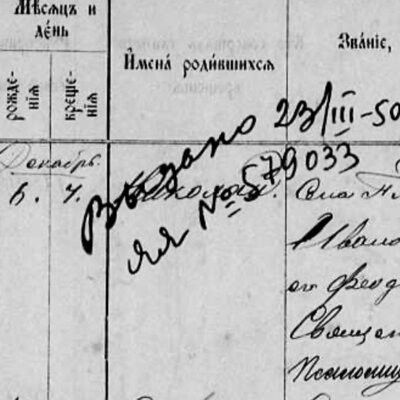 Мѣсяцъ и
де́нь
рожде-
нія
креще-
нія
И҆мена̀ роди́вшихся
Зва́ніе,
Декабрь.
6. 7. Николай.
Выдано 23/III-50
яя № 579033
Села
Ивано
его Феод
Священ
Псаломщ